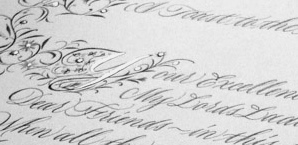 A Toast to the
Your Excellen
My Lords Ladi
Dear Friends ~ in this
When all